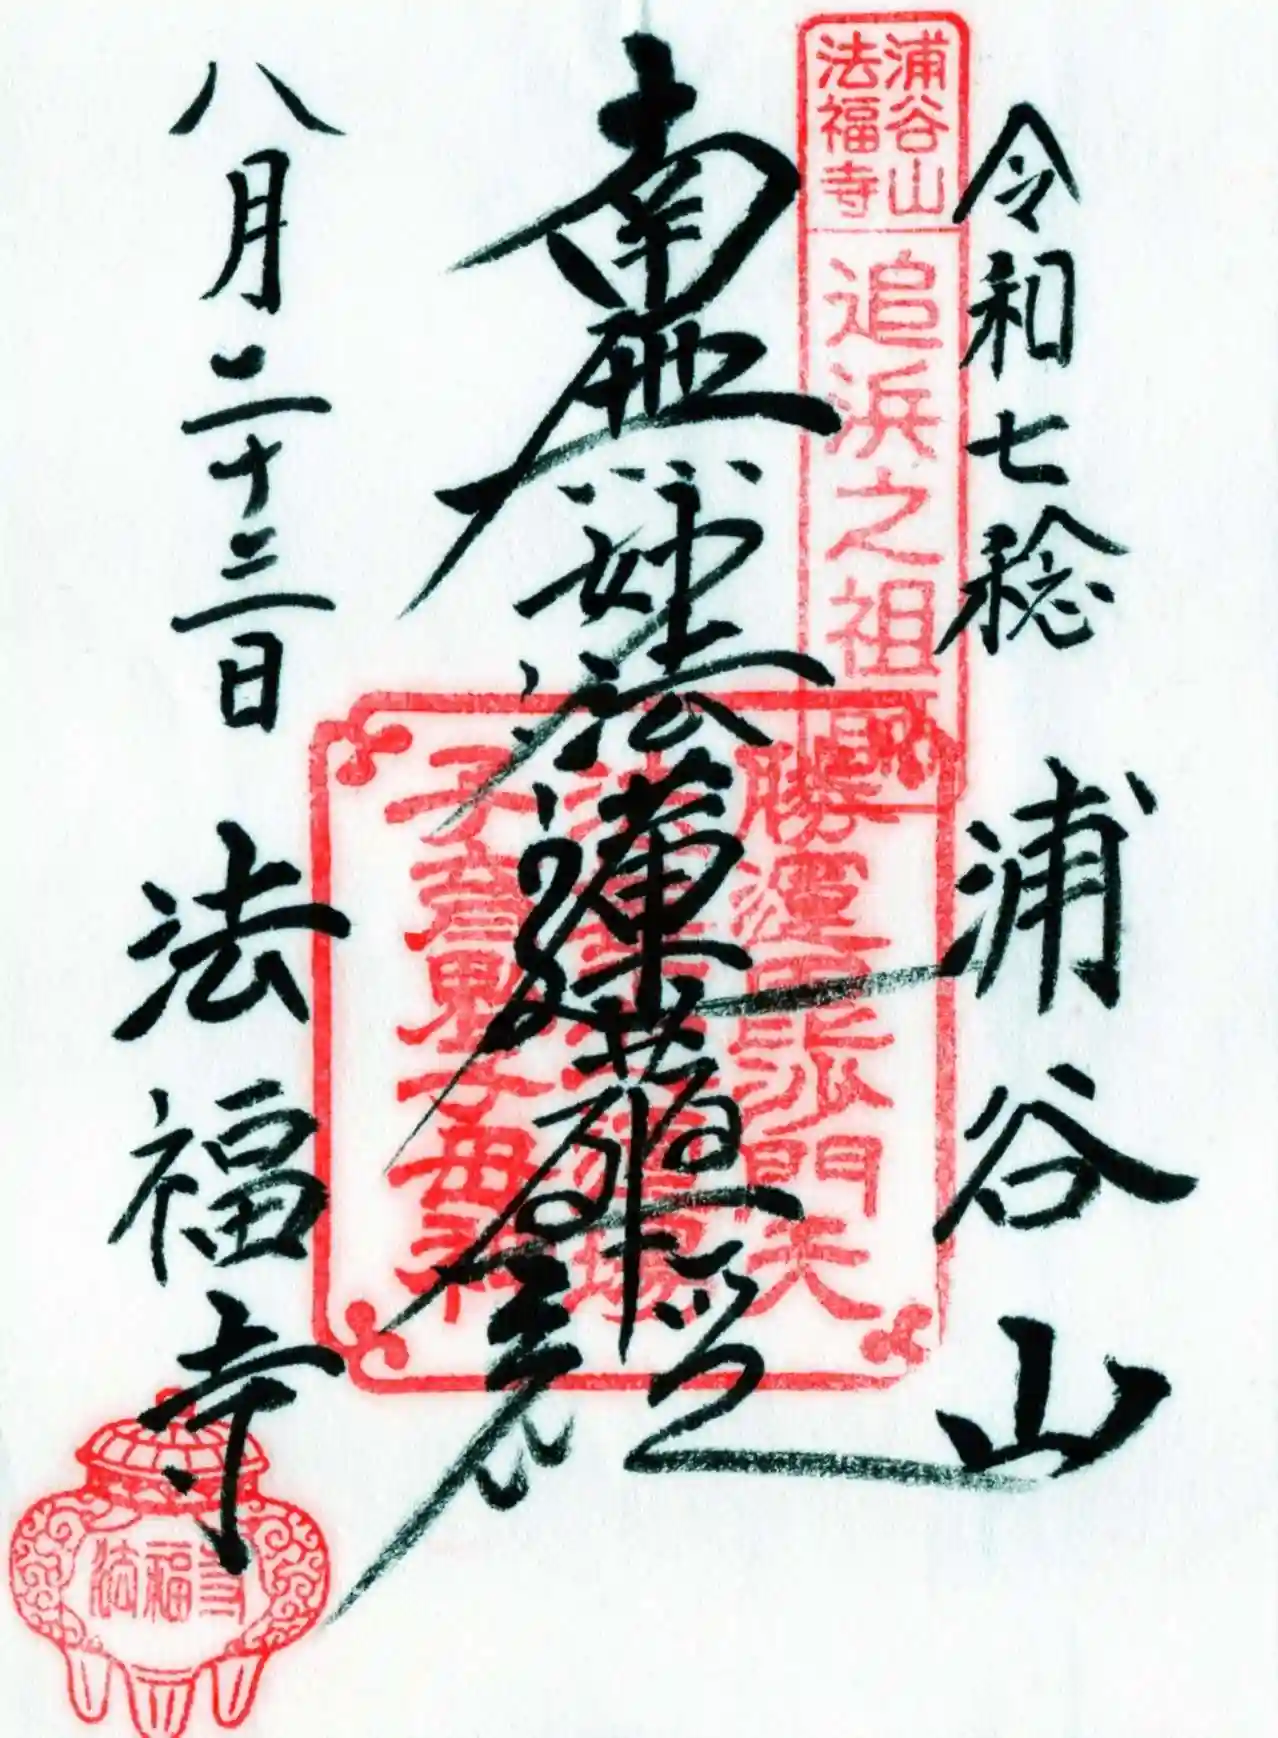 令和七稔 浦谷山
浦谷山
法福寺
追浜之祖師
南無妙法蓮華經
毘沙門天
子育鬼子母神
八月二十三日 法福寺
法福寺